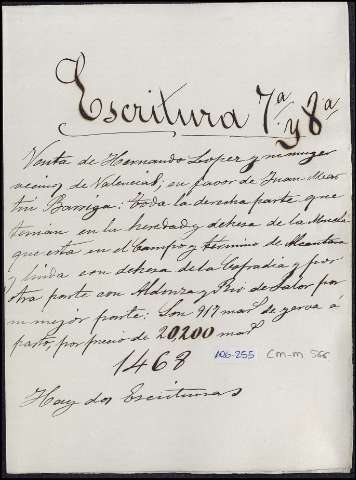 Escritura 7ª y 8ª
Venta de Hernando Lopez y su muger
vecinos de Valencia, en favor de Juan Mar
tin Barriga: toda la derecha parte que
tenian en la heredad y dehesa de la
que esta en el Campo y termino de Alcantara
y linda con dehesa de la Cofradia y por
otra parte con Aldonza y Rio de Salor por
su mejor parte: Son 917 mars de yerva á
pasto, por precio de 20,200 mars
1468
A06-255 CM-M 566
Hay dos Escrituras